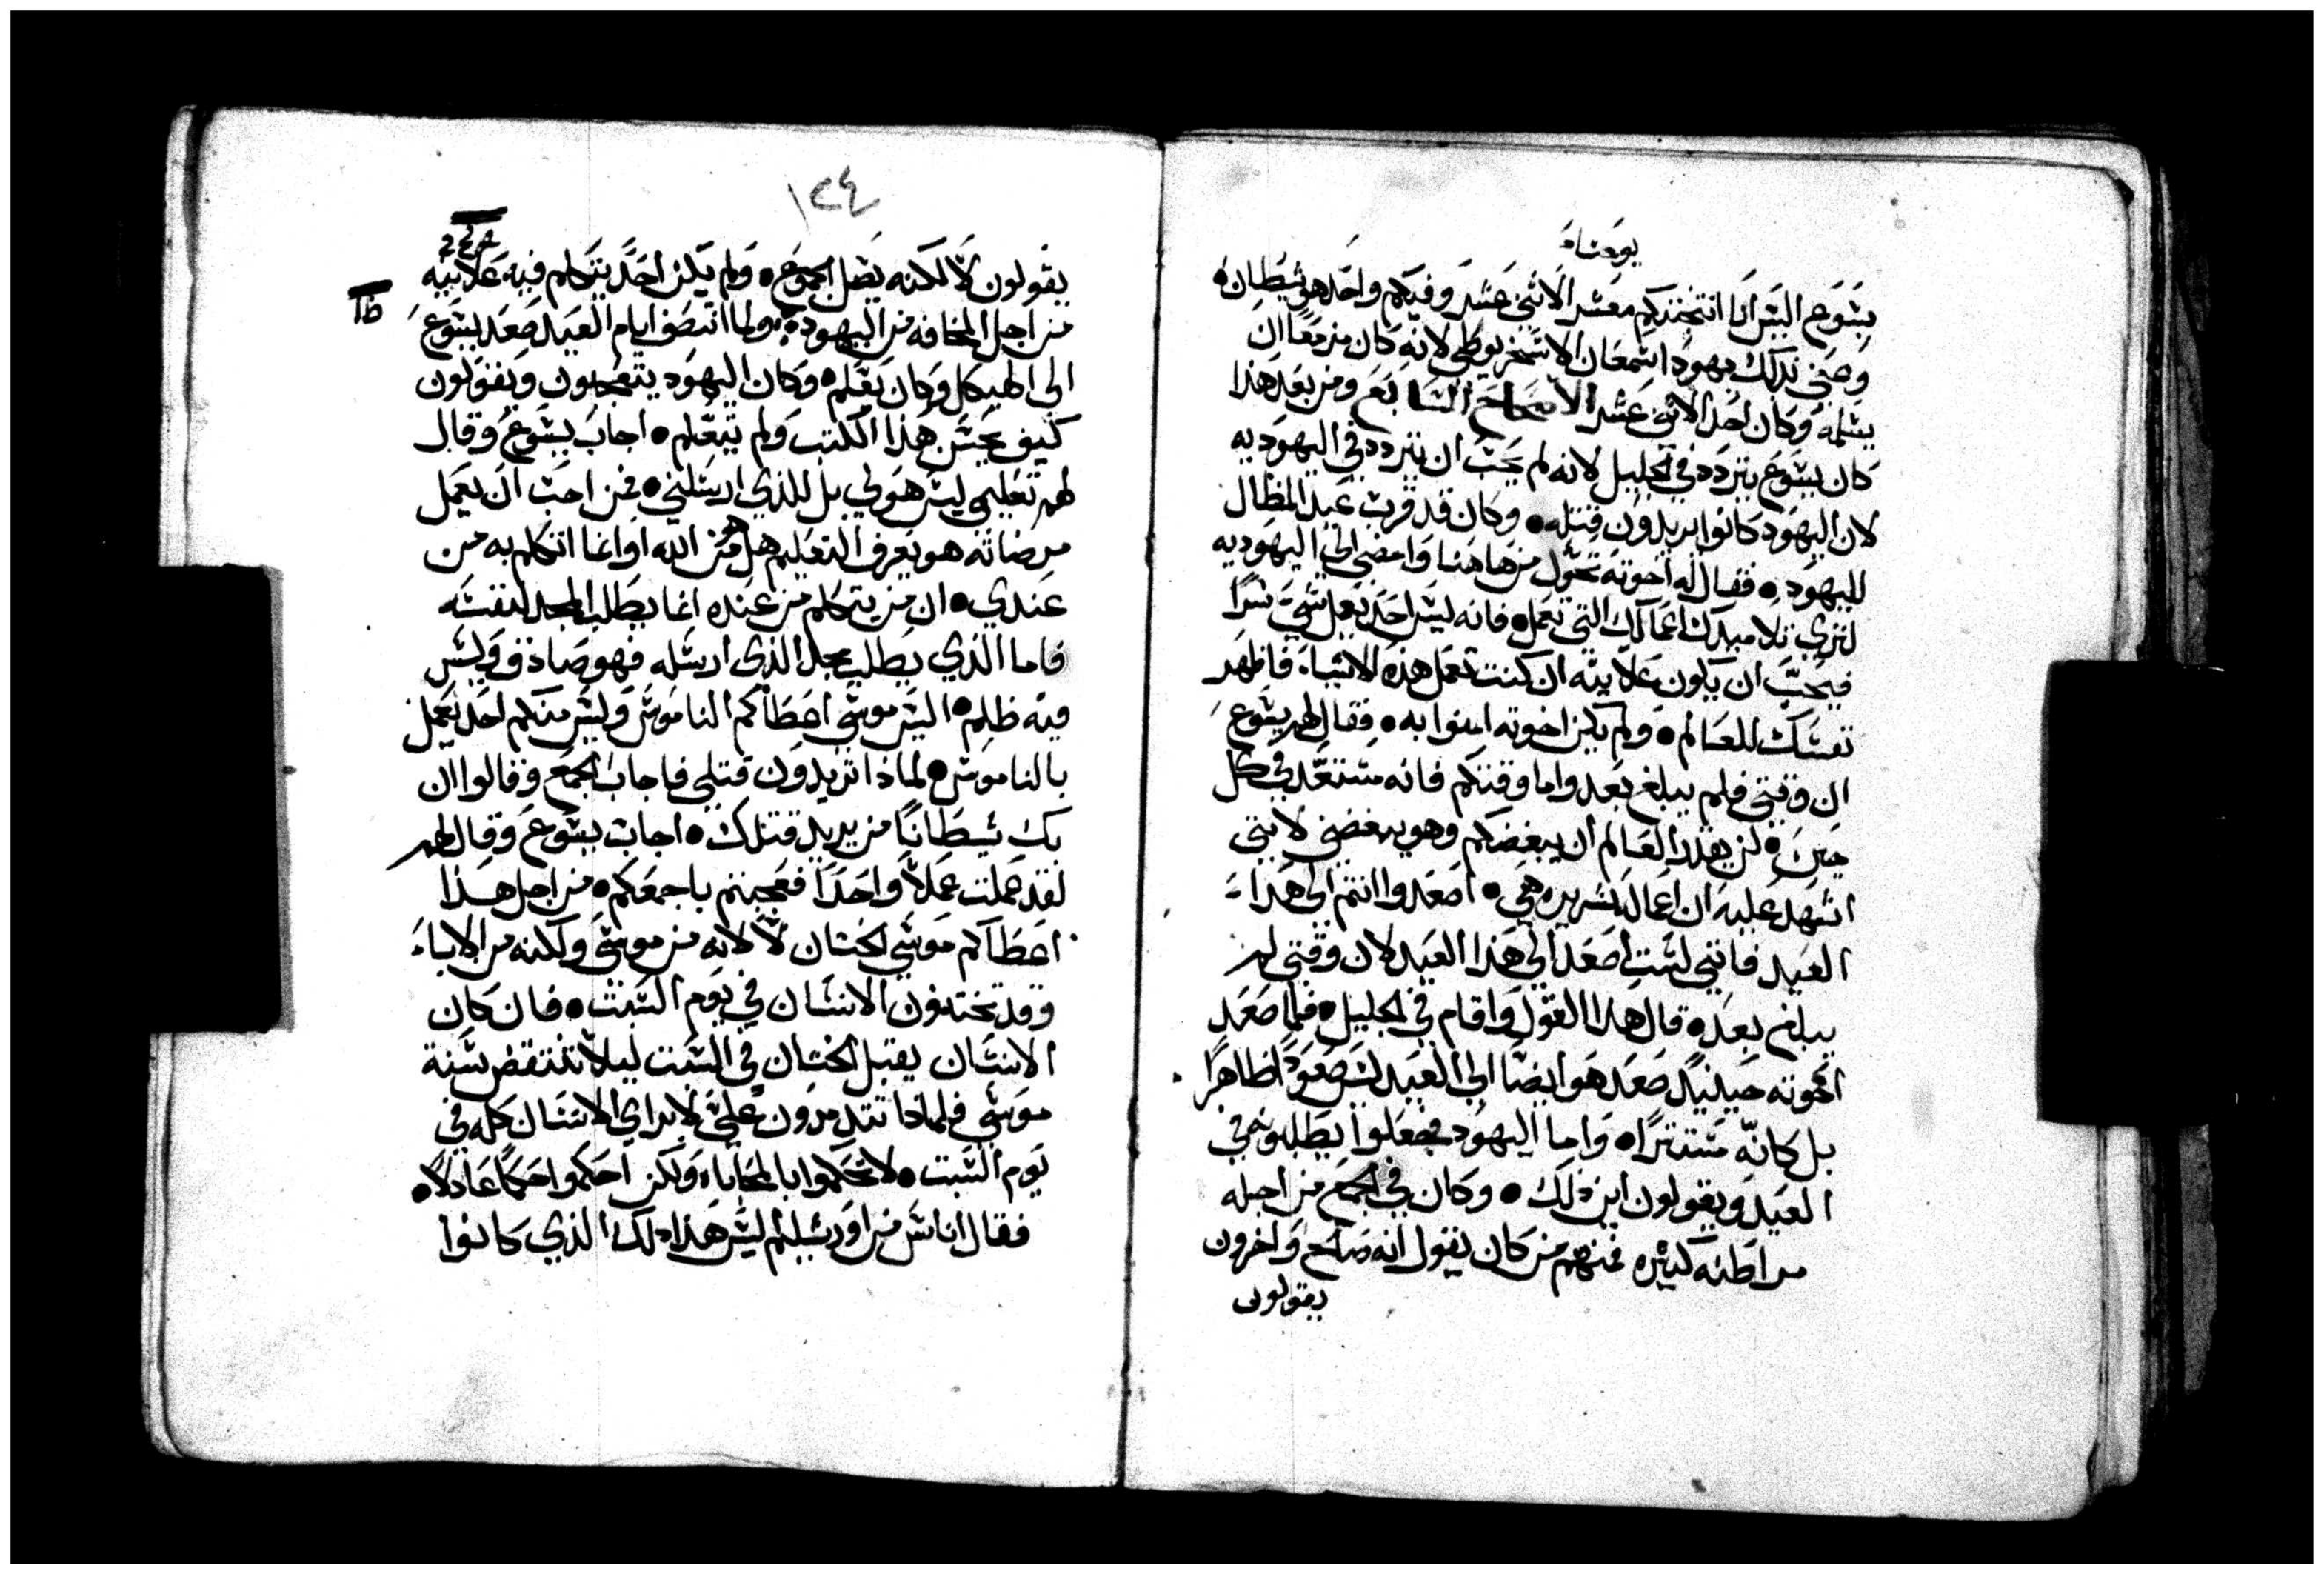 يوحنا
يسوع اليس انا انتخبتكم معشر الاثنى عشر وفيكم واحد هو شيطان
وعنى بذلك يهودا شمعان الاسخريوطى لانه كان مزمعا ان
يسلمه وكان احد الاثنى عشر الاصحاح السابع ومن بعد هذا
كان يسوع يتردد في الجليل لانه لم يحب ان يتردد في اليهوديه
لان اليهود كانوا يريدون قتله وكان قد قرب عيد المظال
لليهود فقال له اخوته تحول من هاهنا وامضى الى اليهوديه
لترى تلاميدك اعمالك التي تعمل فانه ليس احد يعمل شي سرا
فيحب ان يكون علانيه ان كنت تعمل هذه الاشياء فاظهر
نفسك للعالم ولم يكن اخوته امنوا به فقال لهم يسوع
ان وقتي فلم يبلغ بعد واما وقتكم فانه مستعد في كل
حين لن يقدر العالم ان يبغضكم وهو يبغضني لانني
اشهد عليه ان اعماله شريره هي اصعدوا انتم الى هدا
العيد فانني لست اصعد الى هذا العيد لان وقتي لم
يبلغ بعد قال هدا القول واقام في الجليل فلما صعد
اخوته حينيد صعد هو ايضا الى العيد ليس صعودا ظاهرا
بل كانه مستترا واما اليهود فجعلوا يطلبونه في
العيد ويقولون اين ذلك وكان في الجمع من اجله
مراطنه كثيره فمنهم من كان يقول انه صالح واخرون
يقولون
١٢٤
يقولون لا لكنه يضل الجموع ولم يكن احد يتكلم فيه علانيه
من اجل المخافه من اليهود ولما انتصف ايام العيد صعد يسوع
الى الهيكل وكان يعلم وكان اليهود يتعجبون ويقولون
كيف يحسن هذا الكتب ولم يتعلم اجاب يسوع وقال
لهم تعليمي ليس هو لي بل للذي ارسلني فمن احب ان يعمل
مرضاته هو يعرف التعليم هل هو من الله او انما اتكلم به من
عندي ان من يتكلم من عنده انما يطلب المجد لنفسه
فاما الذي يطلب مجد الذى ارسله فهو صادق وليس
فيه ظلم اليس موسى اعطاكم الناموس وليس منكم احد يعمل
بالناموس لماذا تريدون قتلي فاجاب الجمع وقالوا ان
بك شيطانا من يريد قتلك اجاب يسوع وقال لهم
لقد عملت عملا واحدا فعجبتم باجمعكم من اجل هذا
اعطاكم موسى الختان لا لانه من موسى ولكنه من الاباء
وقد تختنون الانسان في يوم السبت فان كان
الانسان يقبل الختان في السبت ليلا تنتقض سنة
موسى فلماذا تتدمرون علي لابراي الانسان كله في
يوم السبت لا تحكموا بالمحاباه ولكن احكموا حكما عادلا
فقال اناس من اورشليم ليس هذا دلك الذي كانوا